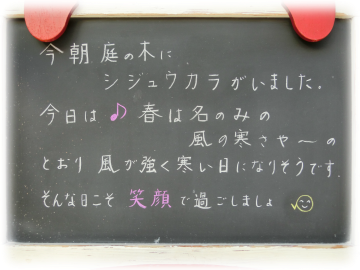 今朝庭の木に
シジュウカラがいました。
今日は♪春は名のみの
風の寒さや〜の
とおり 風が強く寒い日になりそうです.
そんな日こそ 笑顔で過ごしましょ